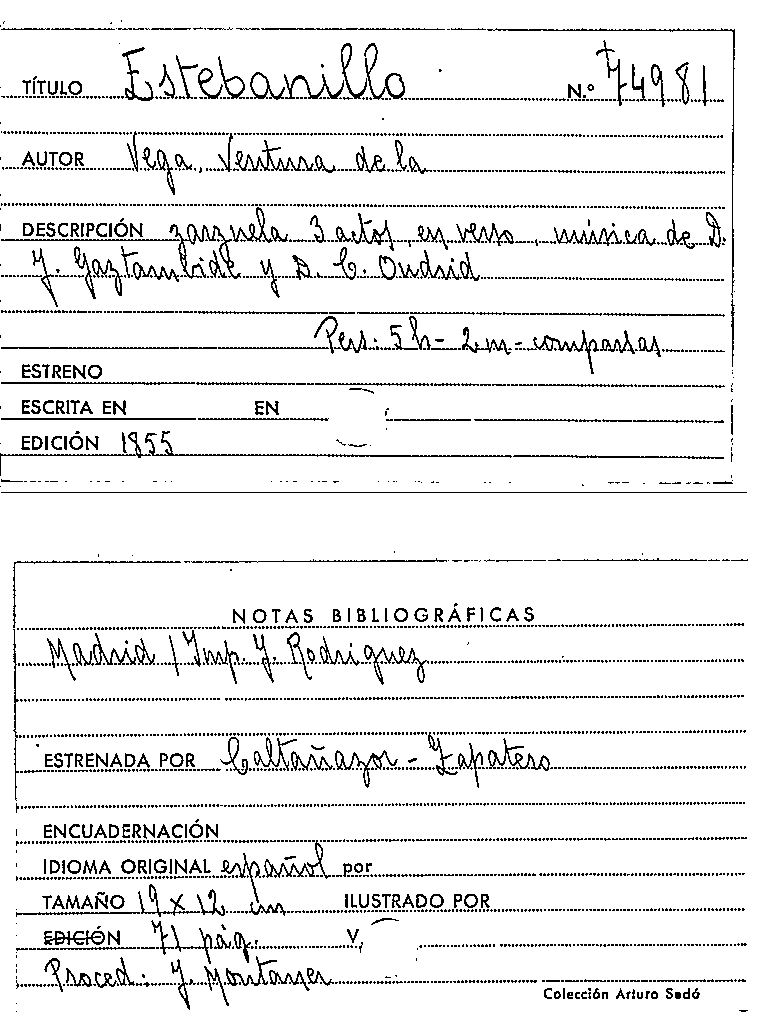 TÍTULO Estebanillo N.º 74981
AUTOR Vega, Ventura de la
DESCRIPCIÓN zarzuela 3 actos, en verso, música de D.
J. Gaztambide y D. C. Oudrid
Pers: 5h - 2m - comparsas
ESTRENO
ESCRITA EN EN
EDICIÓN 1855
NOTAS BIBLIOGRÁFICAS
Madrid / Imp. J. Rodriguez
ESTRENADA POR Caltañazor - Zapatero
ENCUADERNACIÓN
IDIOMA ORIGINAL español por
TAMAÑO 19 x 12 cm ILUSTRADO POR
EDICIÓN 71 pág. V,
Proced: J. Montaner
Colección Arturo Sedó